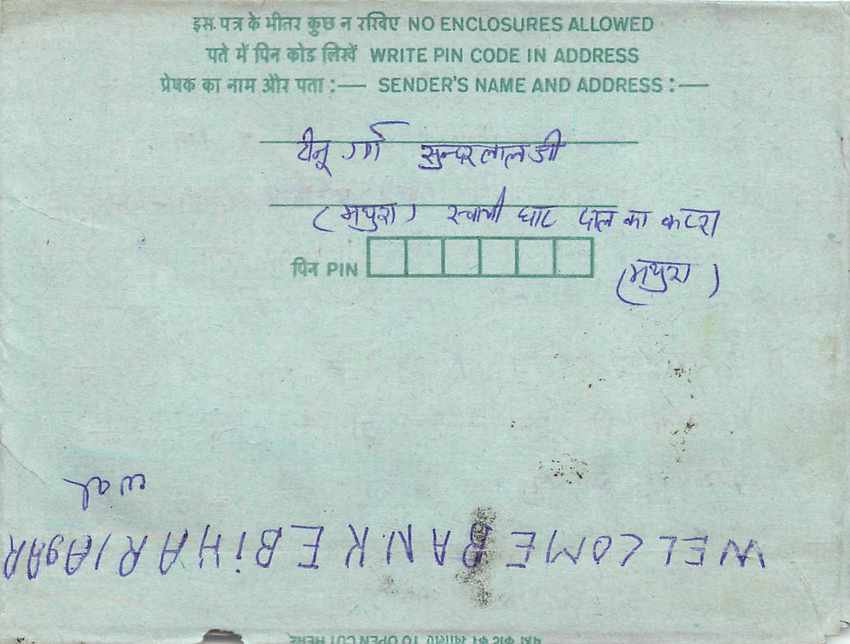 इस पत्र के भीतर कुछ न रखिए NO ENCLOSURES ALLOWED
पते में पिन कोड लिखें WRITE PIN CODE IN ADDRESS
प्रेषक का नाम और पता :— SENDER'S NAME AND ADDRESS :—
टीनू गर्ग सुन्दरलाल जी
(मथुरा) स्वामी घाट दाल का कटरा
पिन PIN
(मथुरा)
WELCOME BANKE BIHARI AGAR
wal
TO OPEN CUT HERE